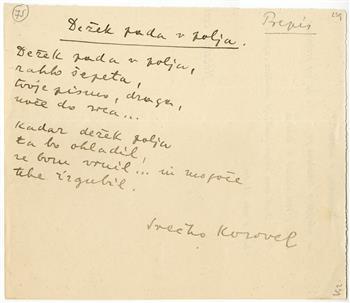 75
Prepis
Dežek pada v polja.
Dežek pada v polja,
rahlo šepeta,
tvoje pismo, draga,
noče do srca...
Kadar dežek polja
ta bo ohladil!
se bom vrnil... in mogoče
tebe izgubil.
Srečko Kosovel